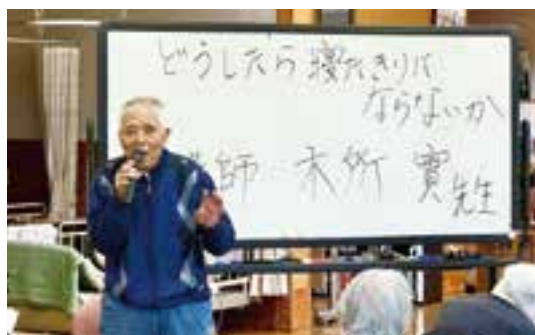 どうしたら寝たきりに
ならないか
師 木所 實先生